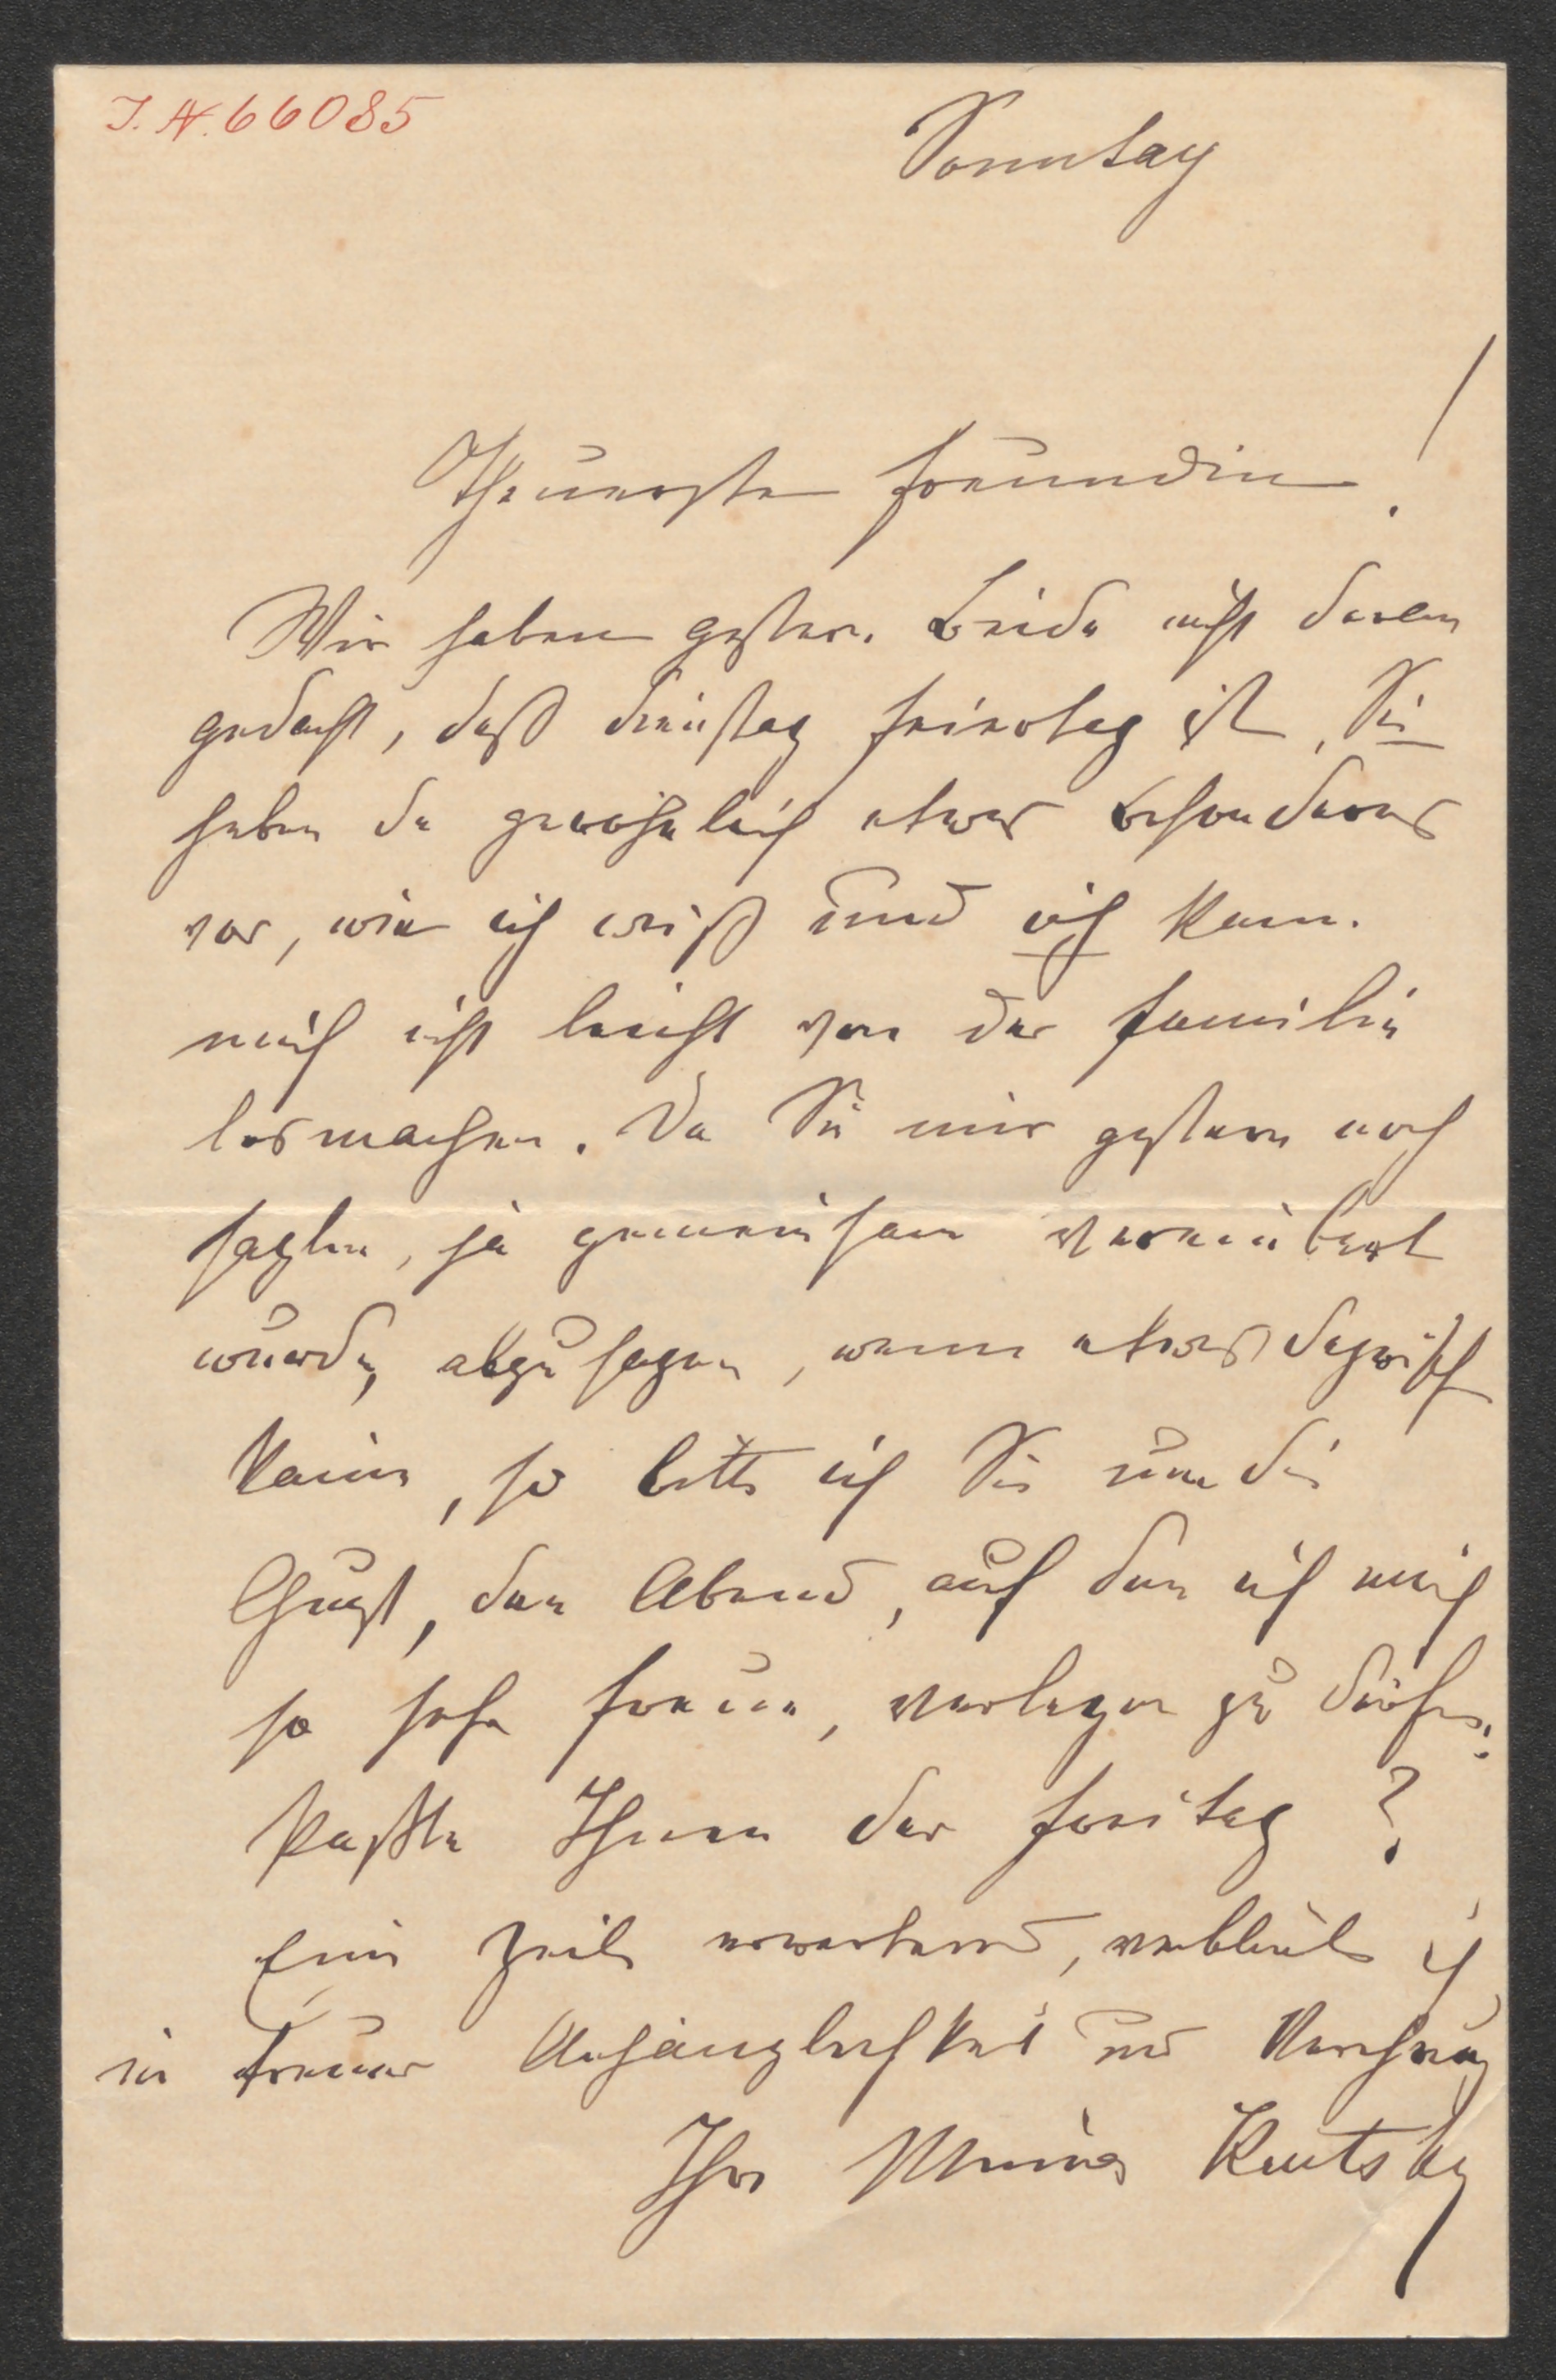 J. N. 66085
Sonntag
Theuerste Freundin!
Wir haben gestern beide nicht daran
gedacht, daß Dienstag Feiertag ist, Sie
haben da gewöhnlich etwas besonderes
vor, wie ich weiß und ich kann
mich nicht leicht von der Familie
losmachen. Da Sie mir gestern noch
sagten, ja gemeinsam vereinbart
wurde, abzusagen, wenn etwas dazwisch
käme, so bitte ich Sie um die
Gunst, den Abend, auf den ich mich
so sehr freue, verlegen zu dürfen.
Paßte Ihnen der Freitag?
Eine Zeile erwartend, verbleibe ich
in treuer Anhänglichkeit und Verehrung
Ihre Minna Kautsky